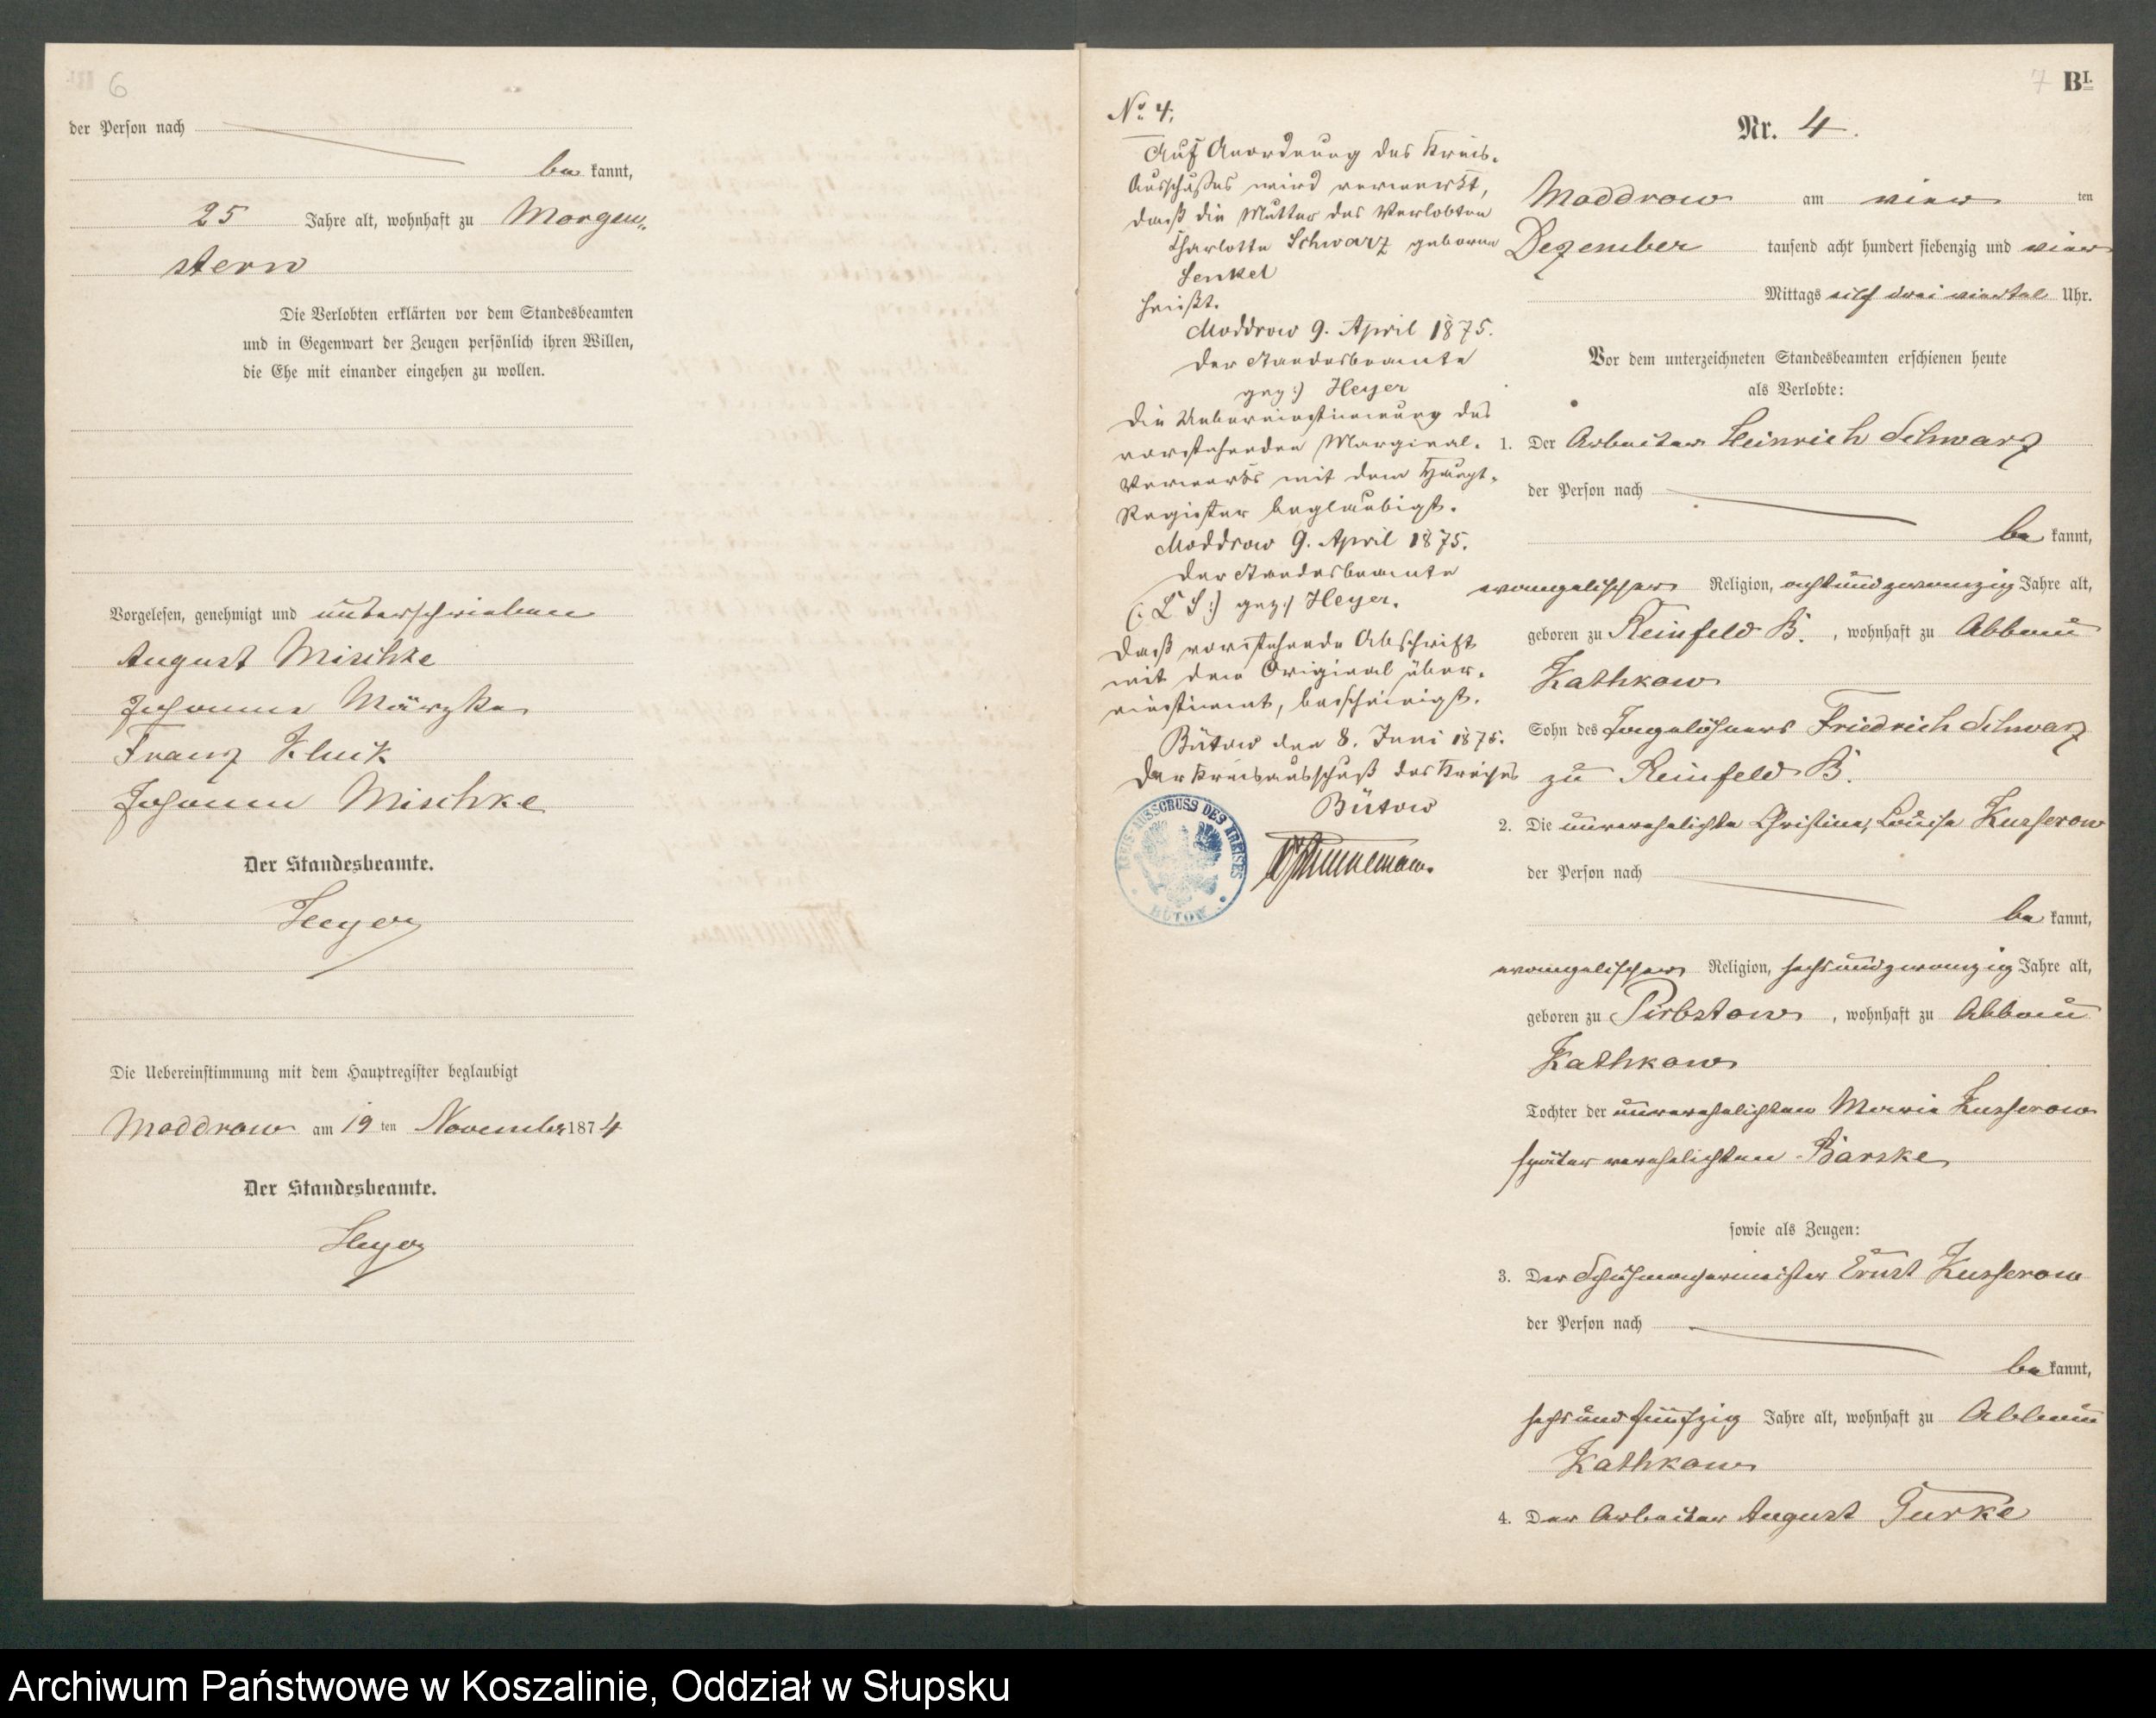 6
der Person nach
be kannt,
25 Jahre alt, wohnhaft zu Morgen„
stern
Die Verlobten erklärten vor dem Standesbeamten
und in Gegenwart der Zeugen persönlich ihren Willen,
die Ehe mit einander eingehen zu wollen.
Vorgelesen, genehmigt und unterschrieben
August Mischke
Johanna
Franz Kluik
Johann Mischke
Der Standesbeamte.
Heyer
Die Uebereinstimmung mit dem Hauptregister beglaubigt
Moddrow am 19 ten November 1874
Der Standesbeamte.
Heyer
No 4.
Auf Anordnung des Kreis-
Ausschußes wird vermerkt,
daß die Mutter des Verlobten
Charlotte Schwarz geborene
Senkel
heißt.
Moddrow 9. April 1875.
Der Standesbeamte
gez:) Heyer
Die Uebereinstimmung des
vorstehenden Marginal-
Vermerks mit dem Haupt-
Register beglaubigt.
Moddrow 9. April 1875.
Der Standesbeamte
(: L S :) gez:) Heyer.
Daß vorstehende Abschrift
mit dem Original über-
einstimmt, bescheinigt.
Bütow den 8. Juni 1875.
Der Kreisausschuß des Kreises
Bütow
KREIS-AUSSCHUSS DES KREISES BÜTOW
7 BI.
Nr. 4.
Moddrow am vier ten
Dezember tausend acht hundert siebenzig und vier
Mittags elf drei viertel Uhr.
Vor dem unterzeichneten Standesbeamten erschienen heute
als Verlobte:
1. Der Arbeiter Heinrich Schwarz
der Person nach
be kannt,
evangelischer Religion, achtundzwanzig Jahre alt,
geboren zu Reinfeld B. , wohnhaft zu Abbau
Kathkow
Sohn des Tagelöhners Friedrich Schwarz
zu Reinfeld B.
2. Die unverehelichte Christine, Louise Kusserow
der Person nach
be kannt,
evangelischer Religion, sechsundzwanzig Jahre alt,
geboren zu Pirbstow , wohnhaft zu Abbau
Kathkow
Tochter der unverehelichten Marie Kusserow
später verehelichten Barske
sowie als Zeugen:
3. Der Schuhmachermeister Ernst Kusserow
der Person nach
be kannt,
sechsundfünfzig Jahre alt, wohnhaft zu Abbau
Kathkow
4. Der Arbeiter August Turke
Archiwum Państwowe w Koszalinie, Oddział w Słupsku